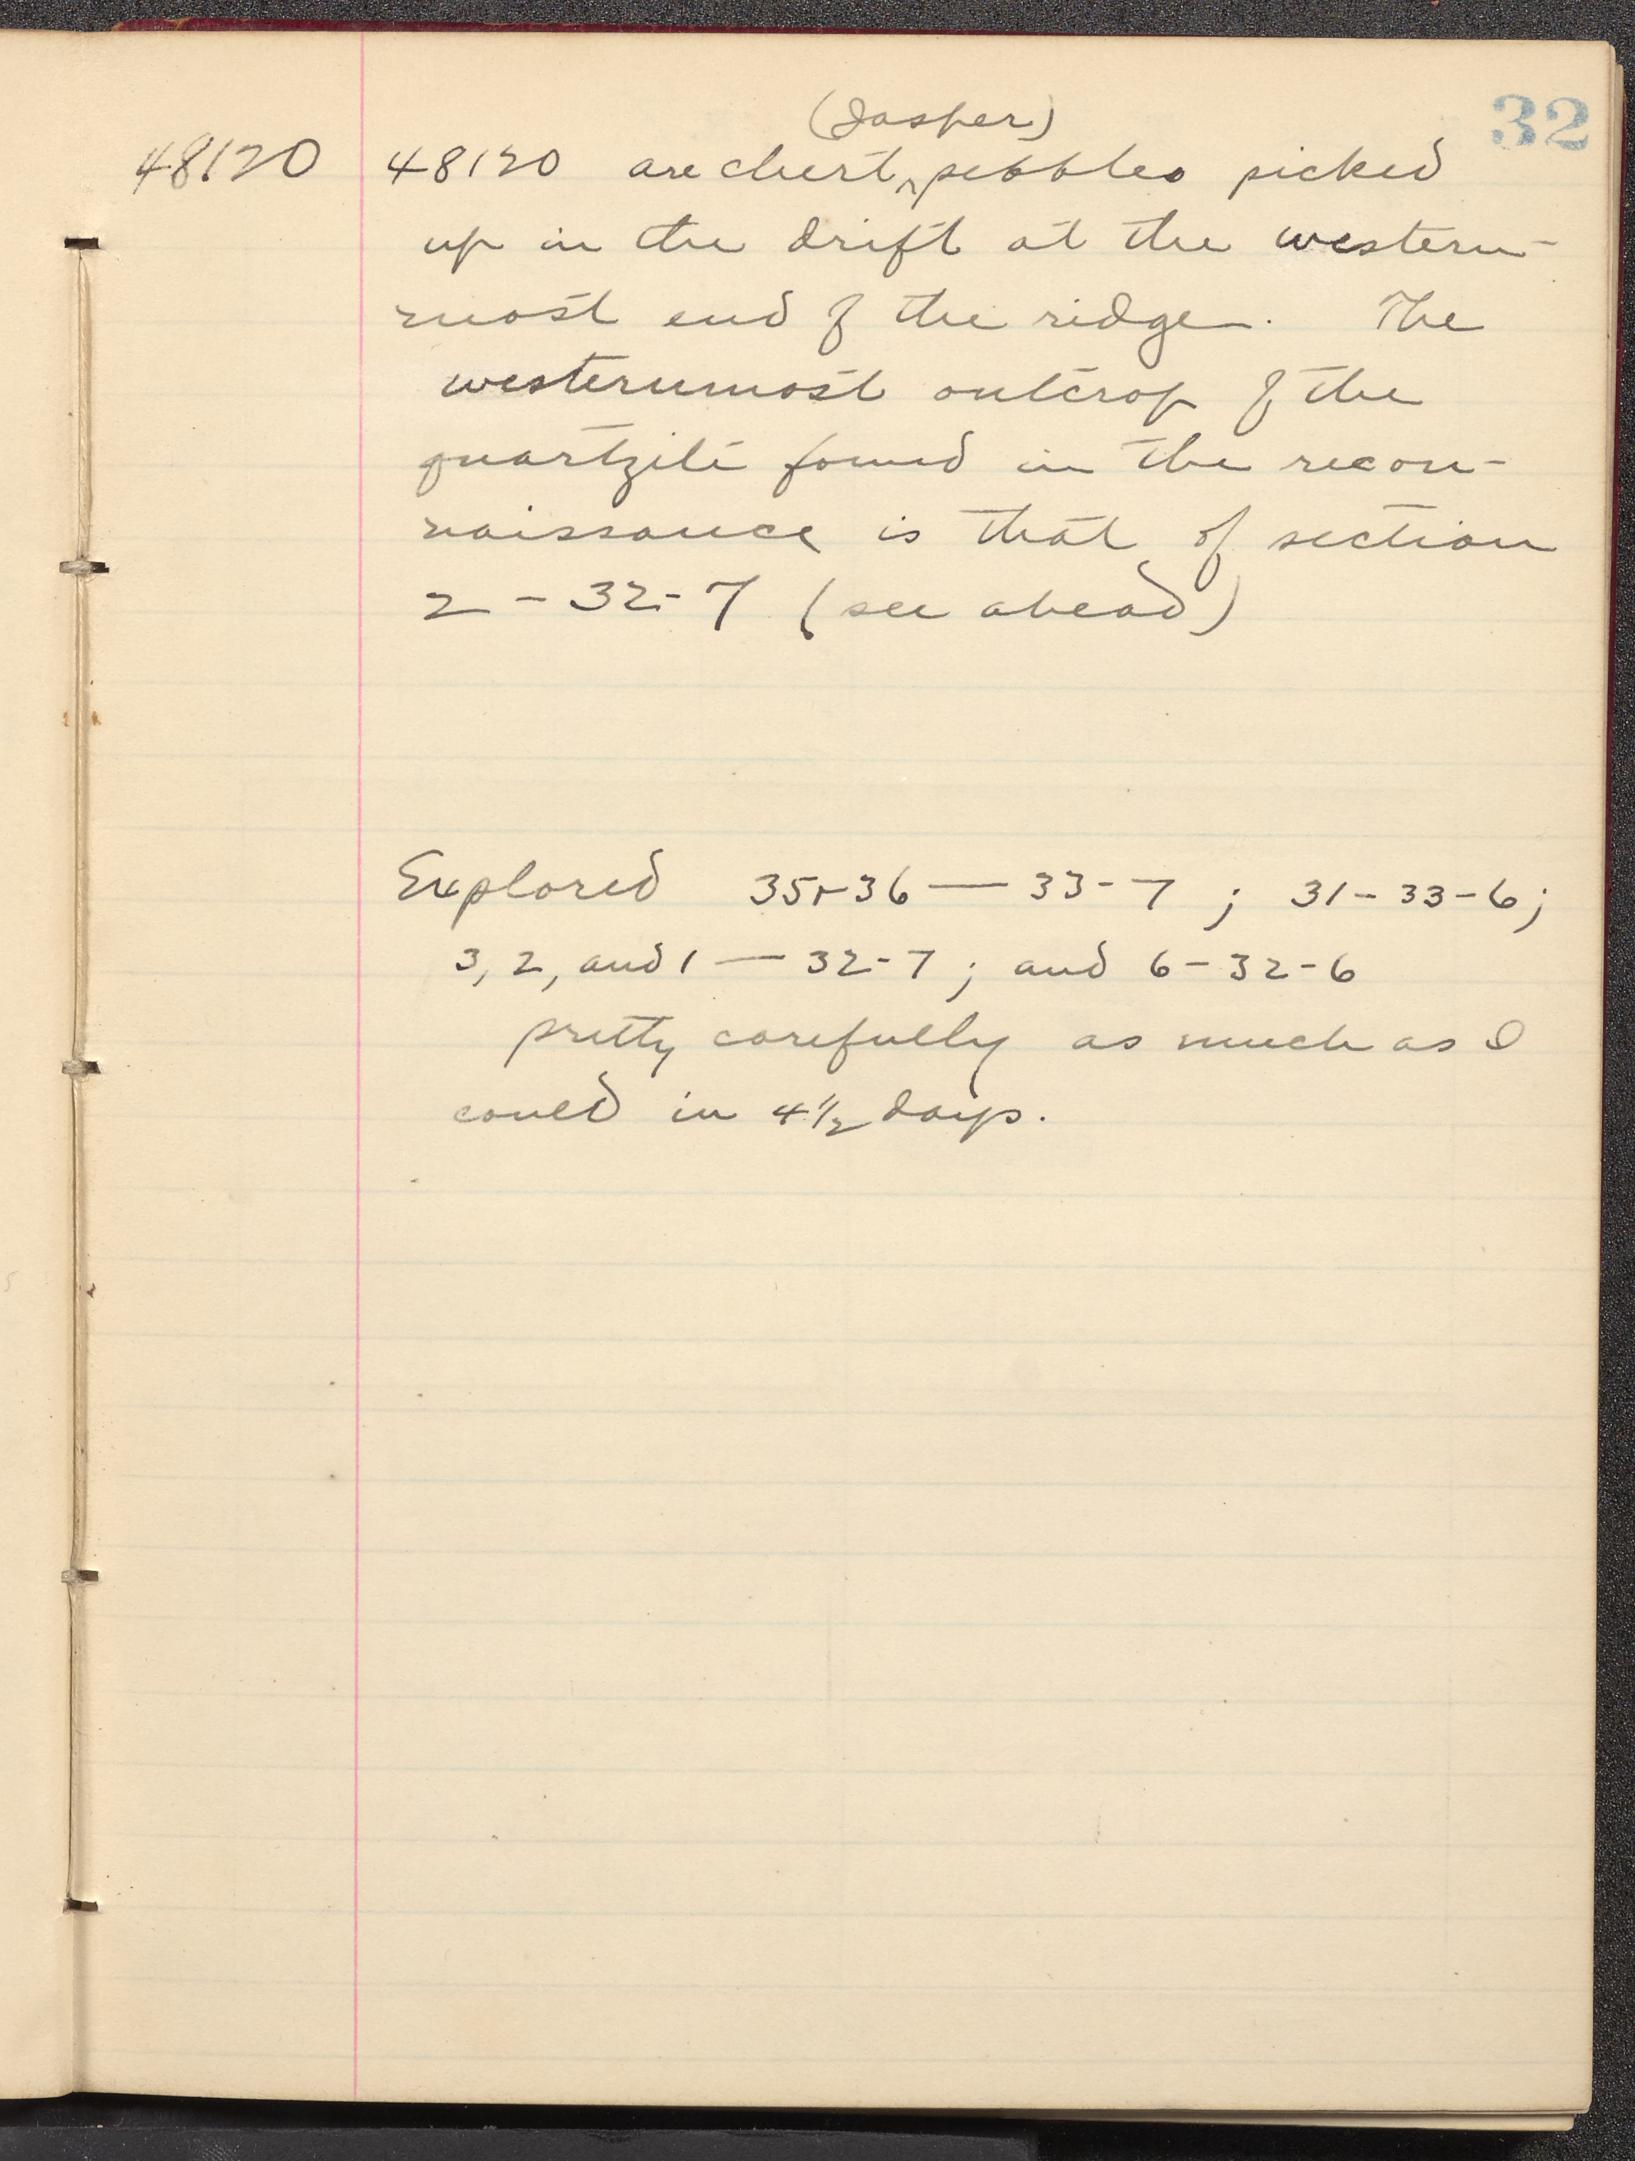 32
(Jasper)
48120 48120 are chert ^ pebbles picked
up in the drift at the western-
most end of the ridge. The
westernmost outcrop of the
quartzite found in the recon-
naissance is that of section
2 - 32-7 (see ahead)
Explored 35+36 — 33-7 ; 31-33-6;
3, 2, and 1 — 32-7 ; and 6-32-6
pretty carefully as much as I
could in 4 1/2 days.